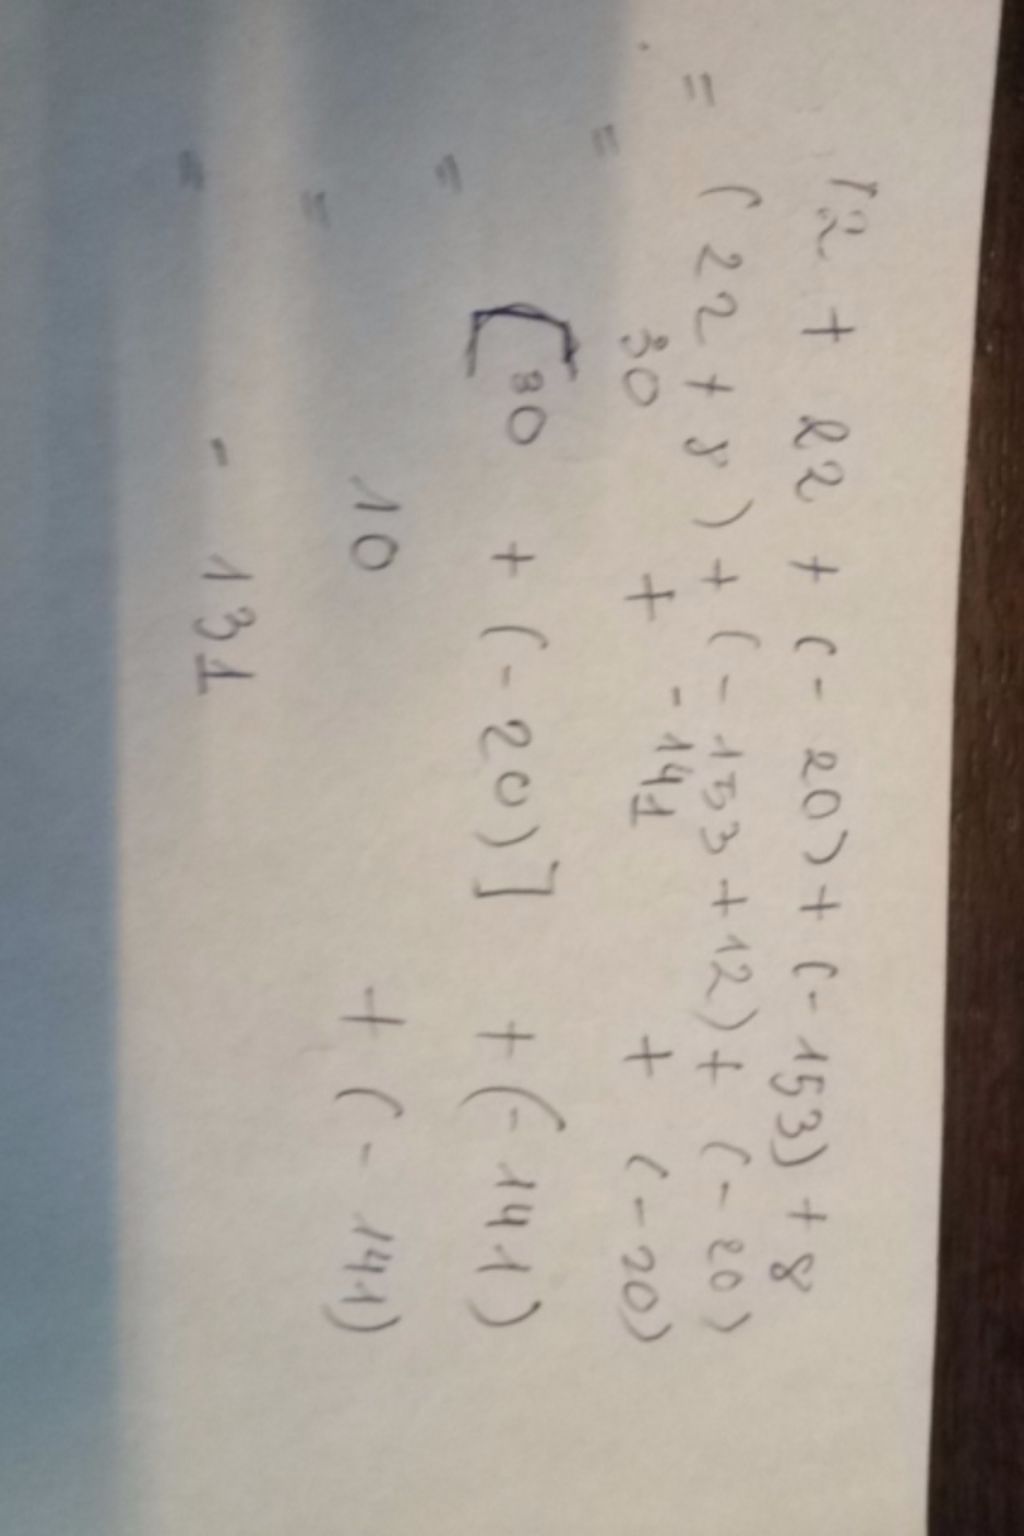 12 + 22 + (- 20) + (- 153) + 8
= (22 + 8) + (- 153 + 12) + (- 20)
= 30 + - 141 + (- 20)
= [30 + (- 20)] + (- 141)
= 10 + (- 141)
= - 131